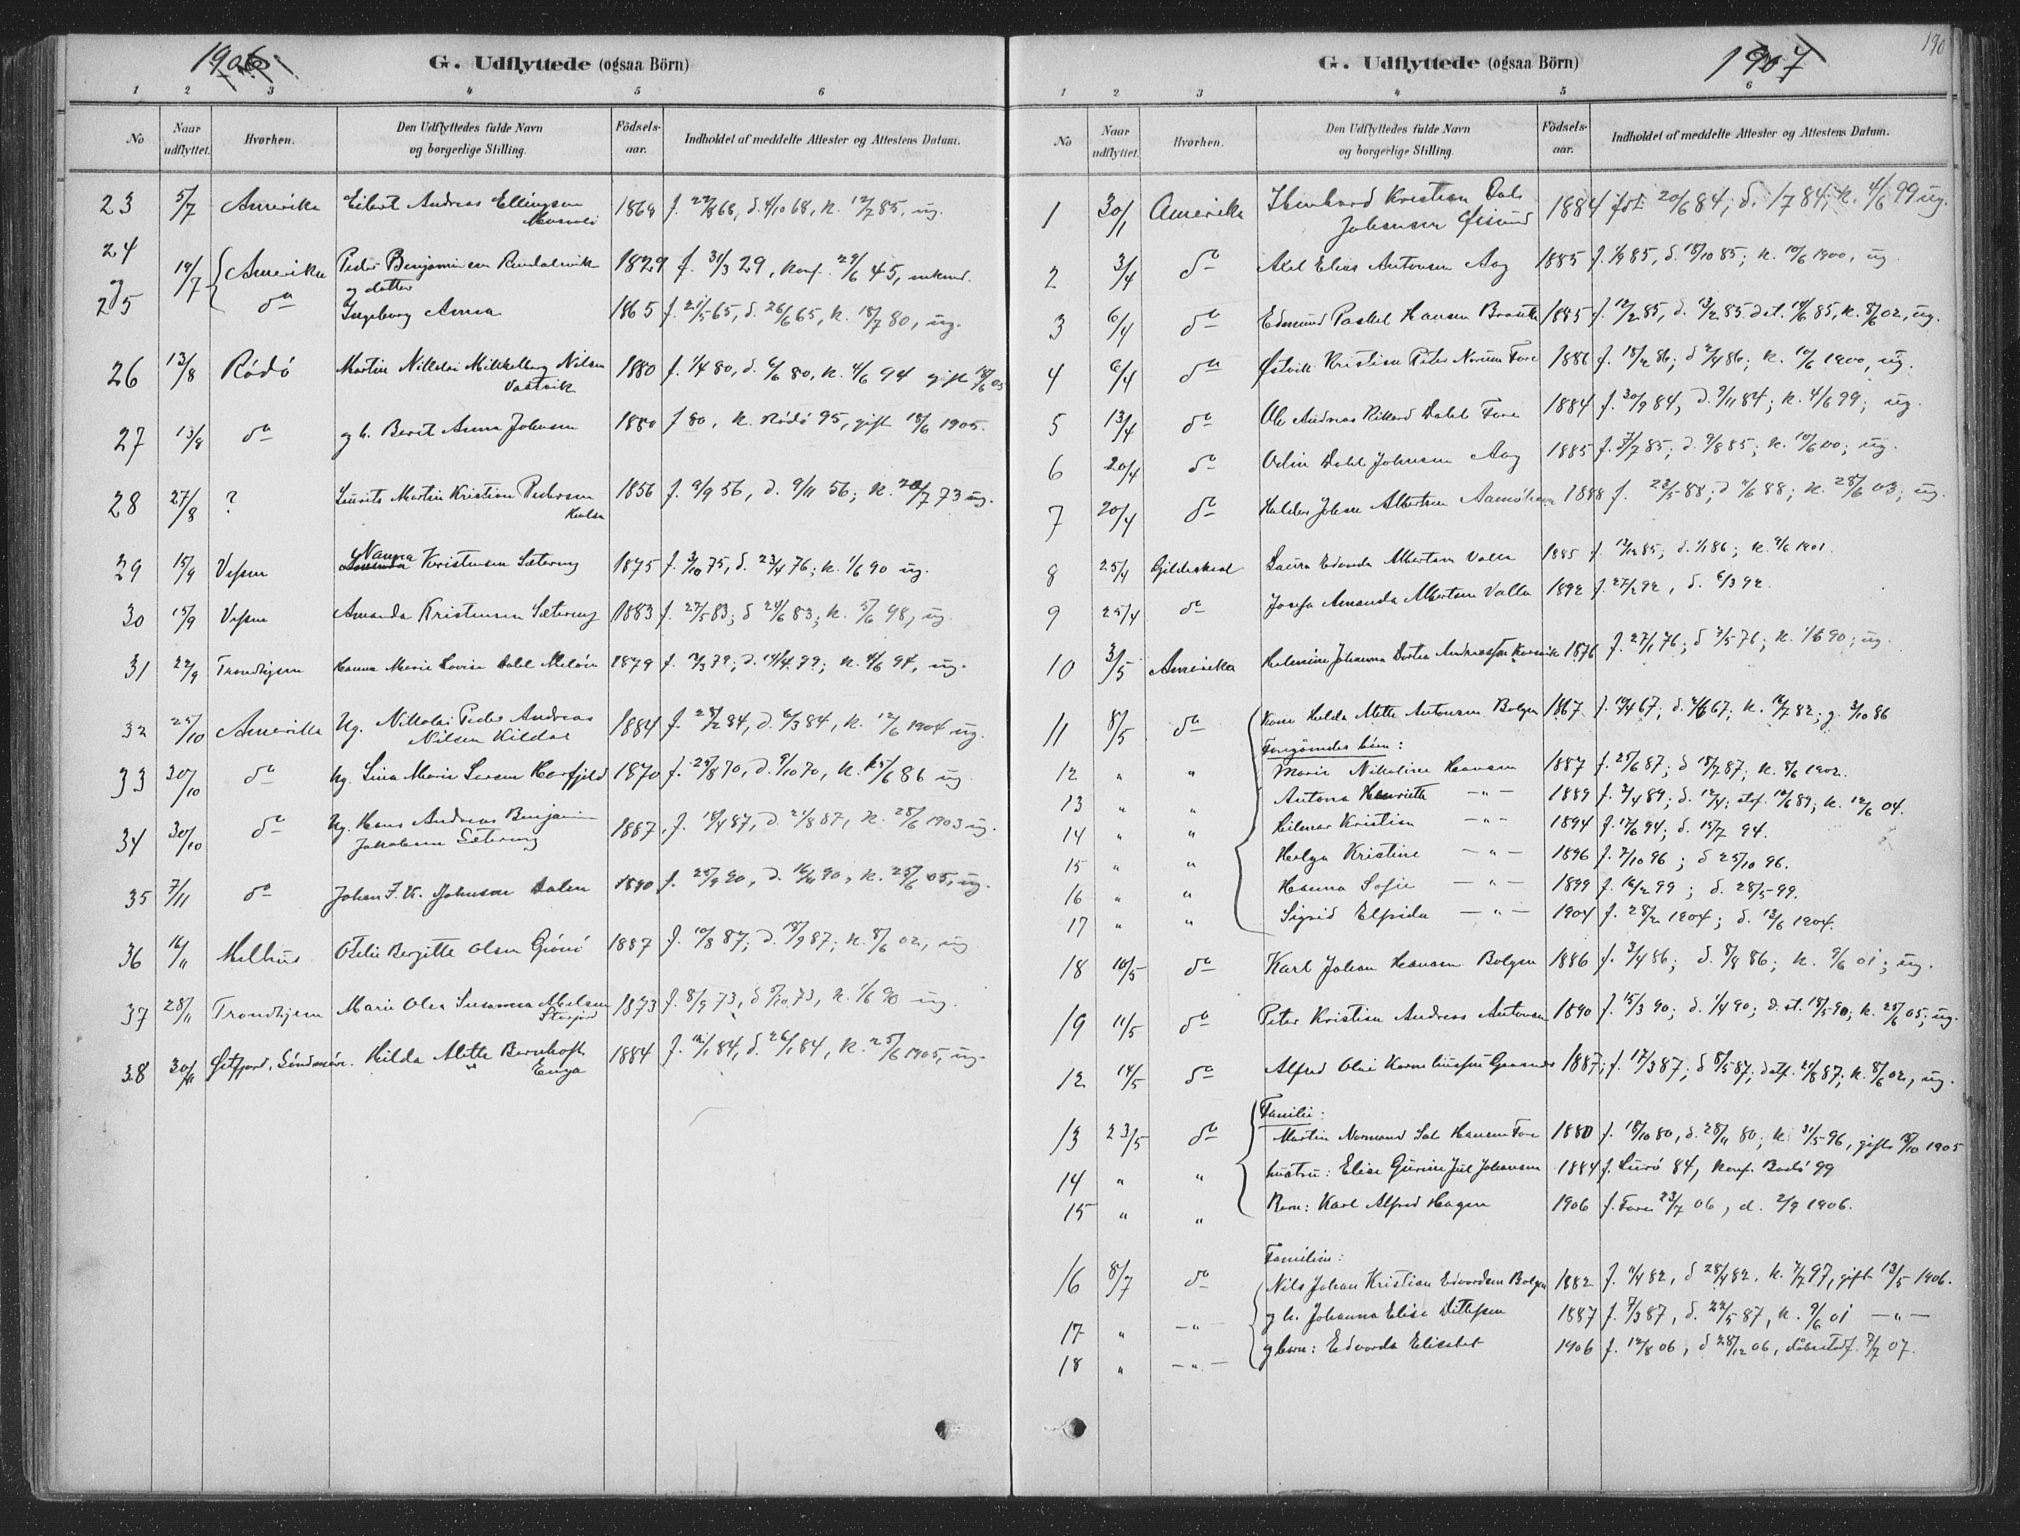 1906.
G. Udflyttede (ogsaa Börn)
1 2 3 4 5 6
No
Naar udflyttet.
Hvorhen.
Den Udflyttedes fulde Navn og borgerlige Stilling.
Födsels-aar.
Indholdet af meddelte Attester og Attestens Datum.
23 5/7 Amerika Eilert Andreas Ellingsen 1868 f. 22/8 68, d. 4/10 68, k. 12/7 85, ug.
24 19/7 Amerika Peder Benjaminsen 1829 f. 31/3 29, konf. 29/6 45,
og og datter
25 do Ingeborg Anna 1865 f. 21/5 65, d. 26/6 65, k. 18/7 80, ug.
26 13/8 Rödö Martin Nikolai Nilsen 1880 f. 1/4 80, d. 6/6 80, k. 4/6 94 gift 18/6 05
27 13/8 do og h. Berit Anna Johnsen 1880 f 80, k. Rödö 95, gift 18/6 1905.
28 27/8 ? Laurits Martin Kristian Pedersen 1856 f. 9/9 56, d. 9/11 56; k. 20/7 73 ug.
29 15/9 Vefsen Nanna Kristensen Sætering 1875 f. 3/10 75, d. 23/4 76; k. 1/6 90 ug.
30 15/9 Vefsen Amanda Kristensen Sætering 1883 f. 27/5 83; d 24/6 83; k. 5/6 98, ug.
31 22/9 Trondhjem Hanna Marie Lovise Dahl 1879 k. 4/6 94, ug.
32 25/10 Amerika Ug. Nikolai Peder Andreas 1884 d. 6/3 84, k. 12/6 1904 ug.
Nilsen Kildal
33 30/10 do Ug. Lina Marie Larsen 1870 f. 25/8 70, d. 9/10 70, k. 25/6 86 ug.
34 30/10 do Ug. Hans Andreas Benjamin 1887, f. 18/4 87, d. 21/8 87, k. 28/6 1903 ug.
Jakobsen Sætering
35 7/11 do Johan J. K. Johnsen Dalen 1890 k. 25/6 05, ug.
36 16/11 Melhus Otelie Bergitte Olsen Grönö 1887 f. 10/8 87; d. 18/9 87; k. 8/6 02, ug.
37 28/11 Trondhjem Marie Olea Susanna Nilsen 1873 f. 8/9 73, d 5/10 73, k. 1/6 90 ug.
38 30/11 Hilda Mette Bernhoft 1884 f. 16/1 84, d. 26/1 84, k. 25/6 1905, ug.
Enga
1907
190
G. Udflyttede (ogsaa Börn)
1 2 3 4 5 6
No
Naar udflyttet.
Hvorhen.
Den Udflyttedes fulde Navn og borgerlige Stilling.
Födsels-aar.
Indholdet af meddelte Attester og Attestens Datum.
1 30/1 Amerika Kristian Dal 1884 20/6 84; d. 1/7 84; k. 4/6 99 ug.
Johansen Øsund
2 3/4 do Axel Elias Antonsen Aag 1885 d. 18/10 85; k. 10/6 1900, ug.
3 6/4 do Edmund Paskel Hansen 1885 f. 12/2 85, d. 13/2 85 k. 8/6 02, ug.
4 6/4 do Kristian Peter Fore 1886 f. 18/2 86; d 2/4 86; k. 10/6 1900, ug.
5 13/4 do Ole Andreas Rikard Dahl Fore 1884 f. 30/9 84, d. 9/11 84; k. 4/6 99; ug.
6 20/4 do Odin Dahl Johnsen Aag 1885 f. 7/7 85; d. 9/8 85; k. 10/6 00; ug.
7 20/4 do Halder Johan Albertsen 1888 f. 22/5 88; d 88; k. 28/6 03; ug.
8 25/4 Gildeskaal Laura Edvarda Albertsen Valla 1885 f. 12/12 85; d. 1/1 86; k. 9/6 1901.
9 25/4 do Josefa Amanda Albertsen Valla 1892 f. 27/2 92, d. 6/3 92.
10 3/5 Amerika Helmine Johanna Dortea Andreassen 1876 f. 27/1 76; d 7/5 76; k. 1/6 90; ug.
11 8/5 do Kone Hilda Mette Antonsen Bolgen 1867 f. 10/4 67; k. 16/7 82; g. 3/10 86
12 " " Marie Nikoline Hansen 1887 f. 25/6 87; d 18/7 87; k. 8/6 1902.
13 " " Antona Henriette —"— 1889 f. 2/4 89; d. 12/4; k. 12/6 04.
14 " " Hilmar Kristian —"— 1894 f. 17/6 94; d. 15/7 94.
15 " " Helga Kristine —"— 1896 f. 2/10 96; d 25/10 96.
16 " " Hanna Sofie —"— 1899 f. 16/2 99; d. 28/5 99.
17 " " Sigrid Elfrida —"— 1904 f. 28/2 1904; d. 12/6 1904.
18 10/5 do Karl Johan Hansen Bolgen 1886 f. 3/4 86; d. 8/8 86; k. 9/6 01; ug.
19 11/5 do Peter Kristian Andreas Antonsen 1890 f. 15/3 90; d. 1/4 90; d. st. 18/5 90; k. 25/6 05; ug.
12 14/5 do Alfred Olai 1887; f. 17/3 87; d 8/5 87; 21/8 87; k. 8/6 02, ug.
Familie:
13 23/5 do Martin Normand Sal Hansen Fore 1880 f. 18/10 80, d. 28/11 80; k. 31/5 96, gift 15/10 1905
14 " " hustru: Elise Gurine Jul Johansen 1884 f. Lurö 84, konf. Bodö 99
15 " " Barn: Karl Alfred Hagen 1906 f. Fore 23/7 06, d. 2/9 1906.
Familien:
16 8/7 do Nils Johan Kristian Edvardsen Bolgen 1882 f. 11/4 82, d 28/4 82, k. 4/7 97, gift 13/5 1906.
17 " —"— og h. Johanna Elise Ditlefsen 1887 f. 7/3 87, d. 22/5 87, k. 9/6 01 —"—
18 " —"— og barn: Edvarda Elisabet 1906 f. 12/8 06, d 28/12 06, 7/7 07.